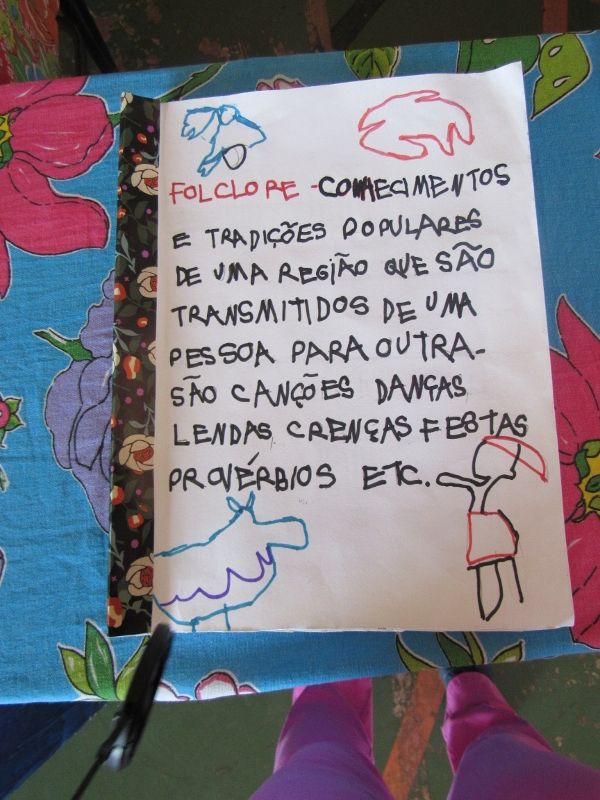 FOLCLORE - CONHECIMENTOS
E TRADIÇÕES POPULARES
DE UMA REGIÃO QUE SÃO
TRANSMITIDOS DE UMA
PESSOA PARA OUTRA-
SÃO CANÇÕES DANÇAS
LENDAS CRENÇAS FESTAS
PROVÉRBIOS ETC.